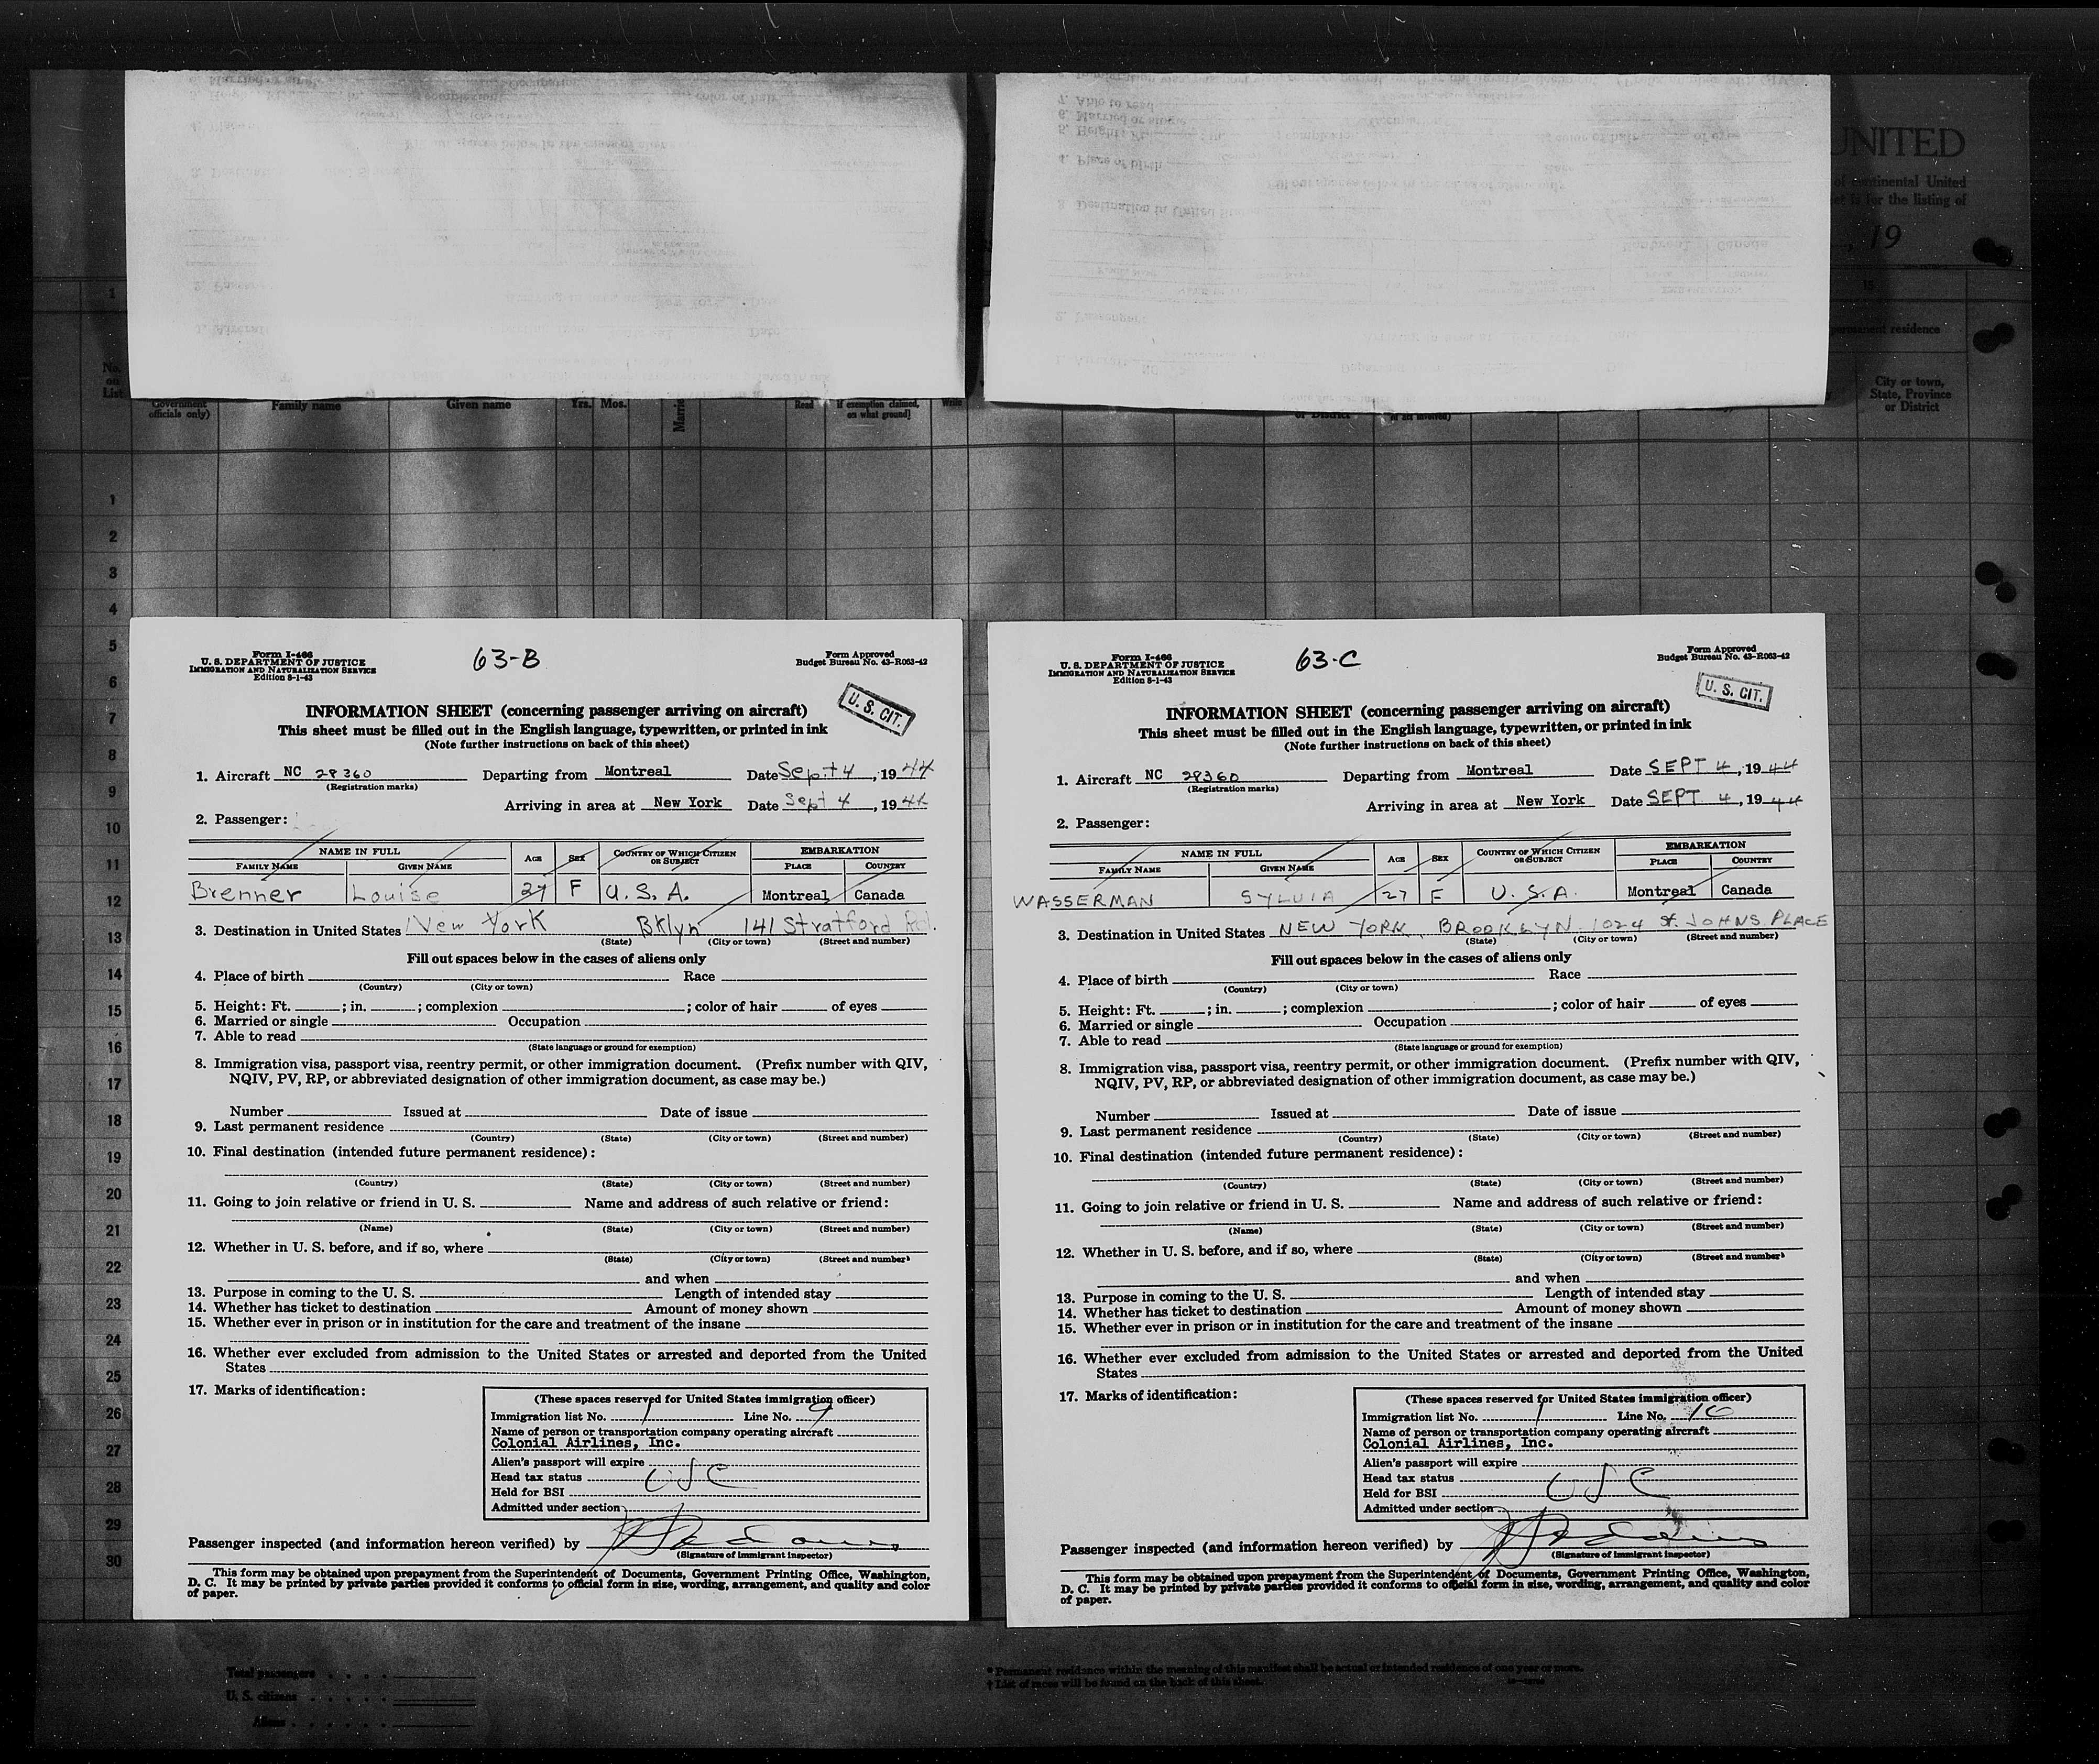 UNITED
of continental United
et is for the listing of
, 19
15
permanent residence
City or town,
State, Province
or District
No.
on
List
Government
officials only)
Family name
Given name
Yrs.
Mos.
Read
if exemption claimed,
on what ground]
Write
63-B
Form I-466
U. S. DEPARTMENT OF JUSTICE
IMMIGRATION AND NATURALIZATION SERVICE
Edition 8-1-43
Form Approved
Budget Bureau No. 43-R063-42
U. S. CIT.
INFORMATION SHEET (concerning passenger arriving on aircraft)
This sheet must be filled out in the English language, typewritten, or printed in ink
(Note further instructions on back of this sheet)
1. Aircraft NC 28360 Departing from Montreal Date Sept 4, 1944
(Registration marks)
Arriving in area at New York Date Sept 4, 1944
2. Passenger:
NAME IN FULL AGE SEX COUNTRY OF WHICH CITIZEN OR SUBJECT EMBARKATION
FAMILY NAME GIVEN NAME PLACE COUNTRY
Brenner Louise 27 F U. S. A. Montreal Canada
3. Destination in United States New York Bklyn 141 Stratford Rd.
(State) (City or town) (Street and number)
Fill out spaces below in the cases of aliens only
4. Place of birth Race
(Country) (City or town)
5. Height: Ft. ; in. ; complexion ; color of hair of eyes
6. Married or single Occupation
7. Able to read
(State language or ground for exemption)
8. Immigration visa, passport visa, reentry permit, or other immigration document. (Prefix number with QIV,
NQIV, PV, RP, or abbreviated designation of other immigration document, as case may be.)
Number Issued at Date of issue
9. Last permanent residence
(Country) (State) (City or town) (Street and number)
10. Final destination (intended future permanent residence):
(Country) (State) (City or town) (Street and number)
11. Going to join relative or friend in U. S. Name and address of such relative or friend:
(Name) (State) (City or town) (Street and number)
12. Whether in U. S. before, and if so, where
(State) (City or town) (Street and number)
and when
13. Purpose in coming to the U. S. Length of intended stay
14. Whether has ticket to destination Amount of money shown
15. Whether ever in prison or in institution for the care and treatment of the insane
16. Whether ever excluded from admission to the United States or arrested and deported from the United
States
17. Marks of identification:
(These spaces reserved for United States immigration officer)
Immigration list No. 1 Line No. 9
Name of person or transportation company operating aircraft
Colonial Airlines, Inc.
Alien's passport will expire
Head tax status USC
Held for BSI
Admitted under section
Passenger inspected (and information hereon verified) by
(Signature of immigrant inspector)
This form may be obtained upon prepayment from the Superintendent of Documents, Government Printing Office, Washington,
D. C. It may be printed by private parties provided it conforms to official form in size, wording, arrangement, and quality and color
of paper.
63-C
Form I-466
U. S. DEPARTMENT OF JUSTICE
IMMIGRATION AND NATURALIZATION SERVICE
Edition 8-1-43
Form Approved
Budget Bureau No. 43-R063-42
U. S. CIT.
INFORMATION SHEET (concerning passenger arriving on aircraft)
This sheet must be filled out in the English language, typewritten, or printed in ink
(Note further instructions on back of this sheet)
1. Aircraft NC 28360 Departing from Montreal Date SEPT 4, 1944
(Registration marks)
Arriving in area at New York Date SEPT 4, 1944
2. Passenger:
NAME IN FULL AGE SEX COUNTRY OF WHICH CITIZEN OR SUBJECT EMBARKATION
FAMILY NAME GIVEN NAME PLACE COUNTRY
WASSERMAN SYLVIA 27 F U. S. A. Montreal Canada
3. Destination in United States NEW YORK, BROOKLYN 1024 St. JOHNS PLACE
(State) (City or town) (Street and number)
Fill out spaces below in the cases of aliens only
4. Place of birth Race
(Country) (City or town)
5. Height: Ft. ; in. ; complexion ; color of hair of eyes
6. Married or single Occupation
7. Able to read
(State language or ground for exemption)
8. Immigration visa, passport visa, reentry permit, or other immigration document. (Prefix number with QIV,
NQIV, PV, RP, or abbreviated designation of other immigration document, as case may be.)
Number Issued at Date of issue
9. Last permanent residence
(Country) (State) (City or town) (Street and number)
10. Final destination (intended future permanent residence):
(Country) (State) (City or town) (Street and number)
11. Going to join relative or friend in U. S. Name and address of such relative or friend:
(Name) (State) (City or town) (Street and number)
12. Whether in U. S. before, and if so, where
(State) (City or town) (Street and number)
and when
13. Purpose in coming to the U. S. Length of intended stay
14. Whether has ticket to destination Amount of money shown
15. Whether ever in prison or in institution for the care and treatment of the insane
16. Whether ever excluded from admission to the United States or arrested and deported from the United
States
17. Marks of identification:
(These spaces reserved for United States immigration officer)
Immigration list No. 1 Line No. 10
Name of person or transportation company operating aircraft
Colonial Airlines, Inc.
Alien's passport will expire
Head tax status USC
Held for BSI
Admitted under section
Passenger inspected (and information hereon verified) by
(Signature of immigrant inspector)
This form may be obtained upon prepayment from the Superintendent of Documents, Government Printing Office, Washington,
D. C. It may be printed by private parties provided it conforms to official form in size, wording, arrangement, and quality and color
of paper.
1
1
2
3
4
5
6
7
8
9
10
11
12
13
14
15
16
17
18
19
20
21
22
23
24
25
26
27
28
29
30
Total passengers
U. S. citizens
Aliens
* Permanent residence within the meaning of this manifest shall be actual or intended residence of one year or more.
† List of races will be found on the back of this sheet.